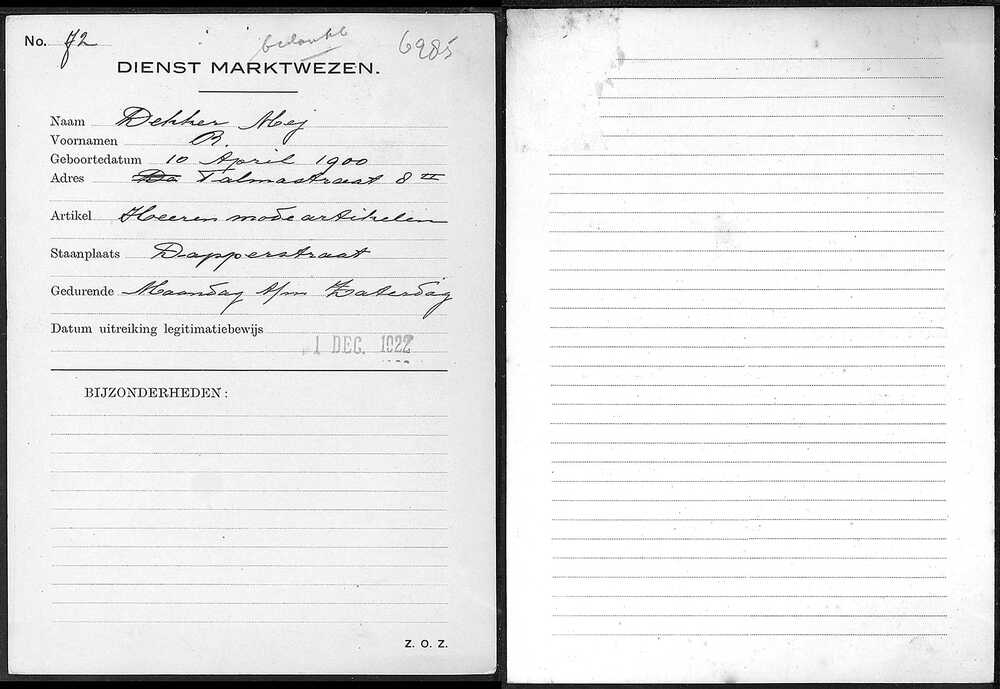 No. 72
bedankt 6985
DIENST MARKTWEZEN.
Naam Dekker Mej
Voornamen R.
Geboortedatum 10 April 1900
Adres Da Talmastraat 8 II
Artikel Heeren mode artikelen
Staanplaats Dapperstraat
Gedurende Maandag t/m Zaterdag
Datum uitreiking legitimatiebewijs
1 DEC. 1922
BIJZONDERHEDEN:
Z. O. Z.